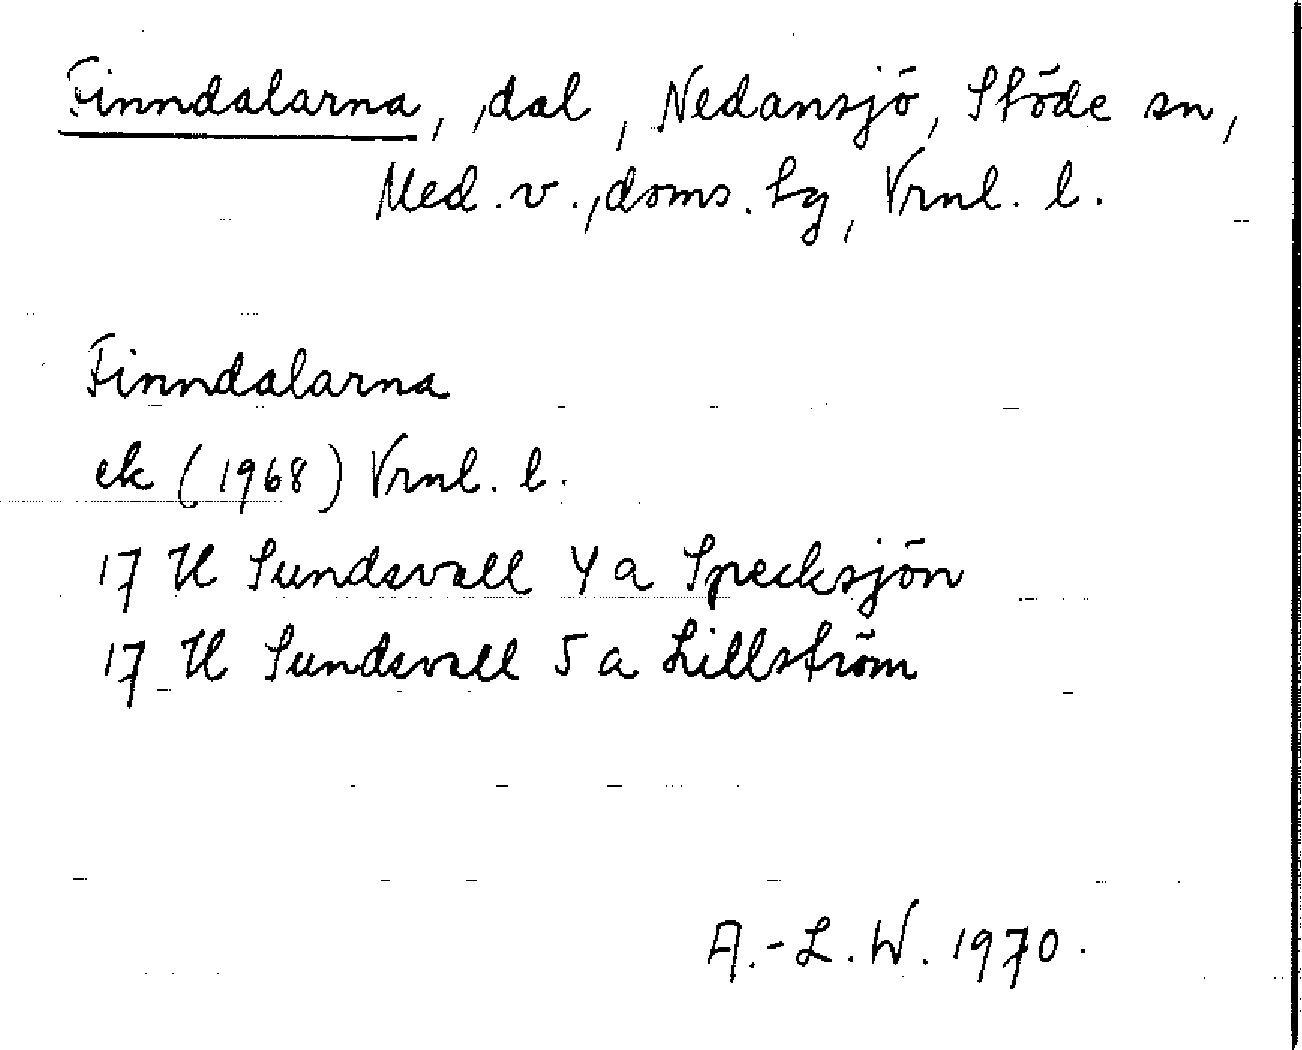 Finndalarna, dal, Nedansjö, Stöde sn,
Med. v., doms. hg, Vrnl. l.
Finndalarna
ek (1968) Vrnl. l.
17 H Sundsvall 4 a Specksjön
17 H Sundsvall 5 a Lillström
A.-L. W. 1970.